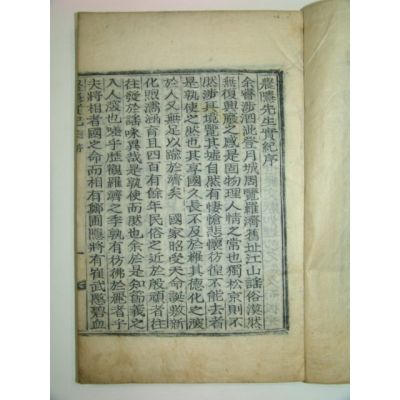 農隱先生實紀序
余嘗涉泗泚登月城周覽羅濟舊址江山謠俗漠然
無復興廢之感固物理人情之常也獨松京則不
然涉其境覽其墟自然有悽愴悲懷彷徨不能去者
是孰使之然也其享國久長不及於羅其德化之浹
於人又無足以踰於濟矣 國家昭受天命誕敷新
化煦濡涵育且四百有餘年民俗之近於殷頑者往
往發於謠詠異哉是孰使而然也余於是知節義之
入人深也嗟乎歷觀羅濟之季孰有彷彿於麗者乎
夫將相者國之命而相有鄭圃隱將有崔武愍碧血